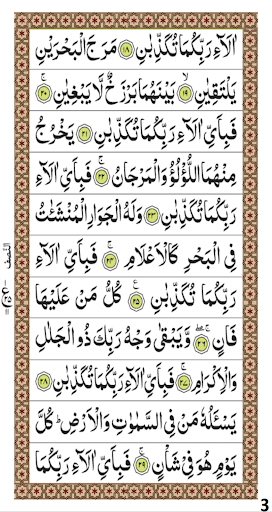 اٰلَآءِ رَبِّكُمَا تُكَذِّبٰنِ ﴿۱۸﴾ مَرَجَ الْبَحْرَيْنِ
يَلْتَقِيٰنِ ﴿۱۹﴾ بَيْنَهُمَا بَرْزَخٌ لَّا يَبْغِيٰنِ ﴿۲۰﴾
فَبِاَيِّ اٰلَآءِ رَبِّكُمَا تُكَذِّبٰنِ ﴿۲۱﴾ يَخْرُجُ
مِنْهُمَا اللُّؤْلُؤُ وَالْمَرْجَانُ ﴿۲۲﴾ فَبِاَيِّ اٰلَآءِ
رَبِّكُمَا تُكَذِّبٰنِ ﴿۲۳﴾ وَلَهُ الْجَوَارِ الْمُنْشَئٰتُ
فِي الْبَحْرِ كَالْاَعْلَامِ ﴿۲۴﴾ فَبِاَيِّ اٰلَآءِ
رَبِّكُمَا تُكَذِّبٰنِ ﴿۲۵﴾ كُلُّ مَنْ عَلَيْهَا
فَانٍ ﴿۲۶﴾ وَّيَبْقٰى وَجْهُ رَبِّكَ ذُو الْجَلٰلِ
وَالْاِكْرَامِ ﴿۲۷﴾ فَبِاَيِّ اٰلَآءِ رَبِّكُمَا تُكَذِّبٰنِ ﴿۲۸﴾
يَسْـَٔلُهٗ مَنْ فِي السَّمٰوٰتِ وَالْاَرْضِ ؕ كُلَّ
يَوْمٍ هُوَ فِيْ شَاْنٍ ﴿۲۹﴾ فَبِاَيِّ اٰلَآءِ رَبِّكُمَا
النصف
3